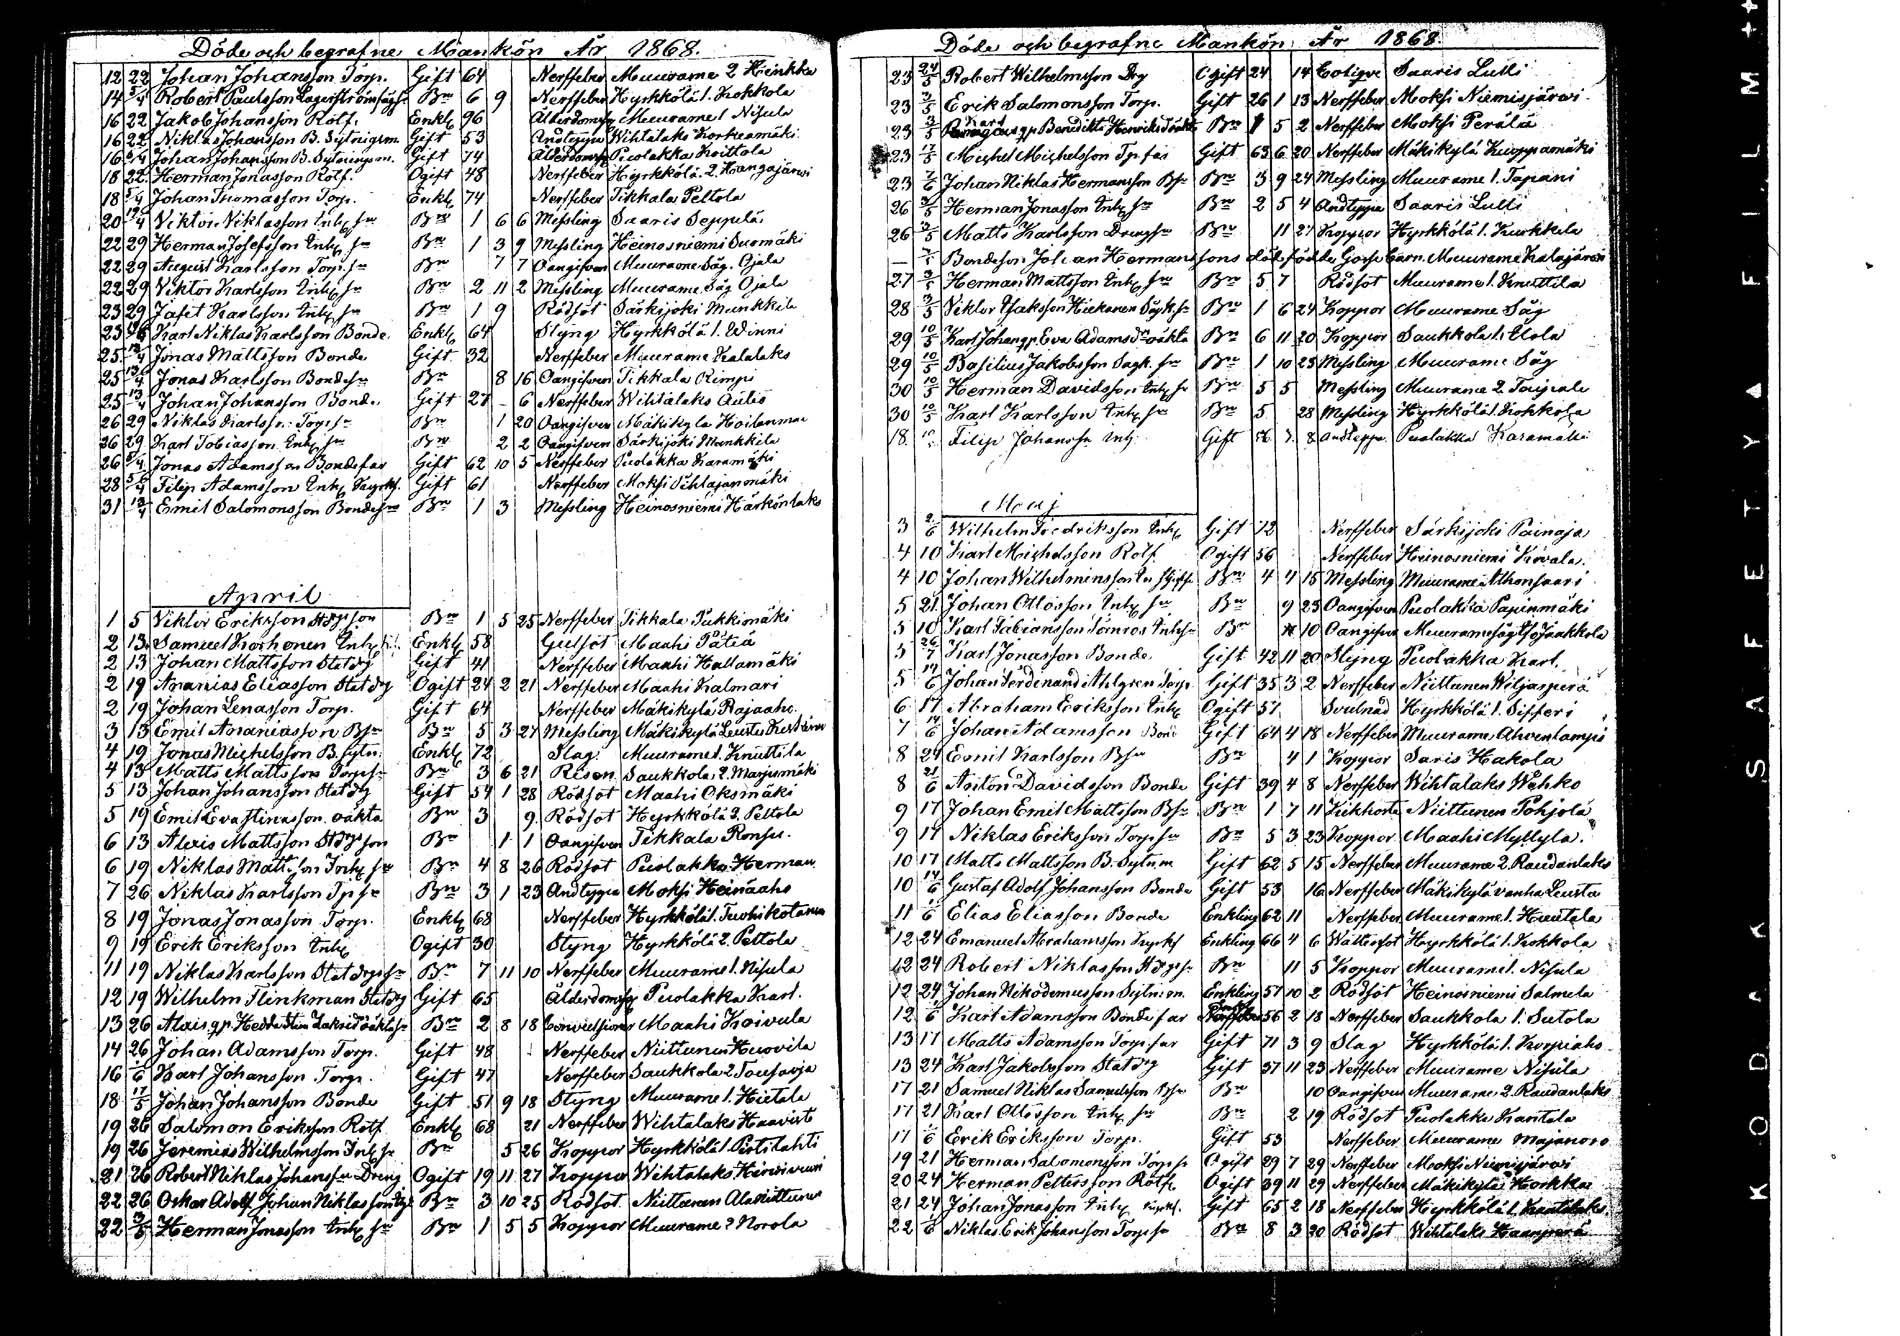 Döde och begrafne Mankön År 1868.
12 22 Johan Johansson Torp. Gift 64 Nerffeber Muurame 2 Heinkka
14 5/4 Robert Paulsson Lagerström Br 6 9 Nerffeber Hyrkkölä 1. Kokkola
16 22 Jakob Johansson Rotf. Enkl 96 Muurame 1 Nisula
16 22 Niklas Johansson B. Sytningsm. Gift 53 Andteppa Wihtalaks Korkeamäki
16 5/4 Johan Johansson B. Sytningsm. Gift 74 Puolakka Koittola
18 22 Herman Jonasson Rotf. Ogift 48 Nerffeber Hyrkkölä 2. Kangajärvi
18 5/4 Johan Thomasson Torp. Enkl 74 Nerffeber Tikkala Peltola
20 Viktor Niklasson Inh. sn Bn 1 6 6 Messling Saaris Seppelä
22 29 Herman Josefsson Inh. sn Bn 1 3 9 Messling Heinosniemi Suomäki
22 29 August Karlsson Torp. sn Bn 7 7 Oangifven Muurame Såg. Ojala
22 29 Viktor Karlsson Inh. sn Bn 2 11 2 Messling Muurame Såg Ojala
23 29 Jafet Karlsson Inh. sn Bn 1 9 Rödsot Särkijoki Munkkila
23 Karl Niklas Karlsson Bonde Enkl 64 Styng Hyrkkölä 1. Winni
25 13/4 Jonas Mattsson Bonde Gift 32 Nerffeber Muurame Kalalaks
25 13/4 Jonas Karlsson Bonde sn Bn 8 16 Oangifven Tikkala Rimpi
25 13/4 Johan Johansson Bonde Gift 27 – 6 Nerffeber Wihtalaks Aulis
26 29 Niklas Karlsson Torp. sn Bn 1 20 Oangifven Mäkikylä
26 29 Karl Tobiasson Inh. sn Bn 2 2 Oangifven Särkijoki Munkkila
26 5/4 Jonas Adamsson Bondefar Gift 62 10 5 Nerffeber Puolakka Karamäki
28 5/4 Filip Adamsson Inh. Gift 61 Nerffeber Moksi Pihlajanmäki
31 13/4 Emil Salomonsson Bondesn Bn 1 3 Messling Heinosniemi Härkönlaks
April
1 5 Viktor Eriksson Bn 1 5 25 Nerffeber Tikkala Tukkimäki
2 13 Samuel Korhonen Inh. Enkl 58 Gulsot Maahi Pätiä
2 13 Johan Mattsson Statdrg Gift 41 Nerffeber Maahi Hallamäki
2 19 Ananias Eliasson Statdrg Ogift 24 2 21 Nerffeber Maahi Kalmari
2 19 Johan Lenasson Torp. Gift 64 Nerffeber Mäkikylä Rajaaho
3 13 Emil Ananiasson Bsn Bn 5 3 27 Messling Mäkikylä Leustu
4 19 Jonas Michelsson B. Sytn. Enkl 72 Slag Muurame 1. Knuttila
4 13 Matts Mattsson Torpsn Bn 3 6 21 Risen Saukkola 2. Marjumäki
5 13 Johan Johansson Statdrg Gift 54 1 28 Rödsot Maahi Oksmäki
5 19 Emil Eva Stinasson oäkta Bn 3 9 Rödsot Hyrkkölä 3. Peltola
6 13 Alexis Mattsson Bn 1 1 Oangifven Tikkala Ronsu.
6 19 Niklas Matt.son Inh. sn Bn 4 8 26 Rödsot Puolakka Herman
7 26 Niklas Karlsson Tp. sn Bn 3 1 23 Andteppa Moksi Heinaaho
8 19 Jonas Jonasson Torp. Enkl 68 Nerffeber Hyrkkölä 1.
9 19 Erik Eriksson Inh. Ogift 30 Styng Hyrkkölä 2. Peltola
11 19 Niklas Karlsson Statdrgsn Bn 7 11 10 Nerffeber Muurame 1. Nisula
12 19 Wilhelm Flinkman Statdrg Gift 65 Ålderdomsg Puolakka Karl.
13 26 Alexis gp. Hedda Stina oäkta sn Bn 2 8 18 Convulsioner Maahi Koivula
14 26 Johan Adamsson Torp. Gift 48 Nerffeber Niittunen Huovila
16 Karl Johansson Torp. Gift 47 Nerffeber Saukkola 2
18 17/5 Johan Johansson Bonde Gift 51 9 18 Styng Muurame 1. Hietala
19 26 Salomon Eriksson Rotf. Enkl 68 21 Nerffeber Wihtalaks Haavisto
19 26 Jeremias Wilhelmsson Inh. sn Bn 5 26 Koppor Hyrkkölä 1.
21 26 Robert Niklas Johansson Dreng Ogift 19 11 27 Koppor Wihtalaks
22 26 Oskar Adolf Johan Niklasson Bn 3 10 25 Rödsot Niittunen Alaniittunen
22 3/5 Herman Jonasson Inh. sn Bn 1 5 5 Koppor Muurame 2 Norola
Döde och begrafne Mankön År 1868.
23 24/5 Robert Wilhelmsson Drg Ogift 24 14 Saaris Lulli
23 3/5 Erik Salomonsson Torp. Gift 26 1 13 Nerffeber Moksi Niemisjärvi
23 3/5 Karl gp. Benedikta Henriksd oäkta Bn 1 5 2 Nerffeber Moksi Perälä
23 17/5 Michel Michelsson Tp. far Gift 63 6 20 Nerffeber Mäkikylä Kuoppamäki
23 7/6 Johan Niklas Hermansson Bsn Bn 3 9 24 Messling Muurame 1. Tapani
26 3/5 Herman Jonasson Inh. sn Bn 2 5 4 Andteppa Saaris Lulli
26 3/5 Matts Karlsson Drengsn Bn 11 27 Koppor Hyrkkölä 1. Kukkula
– Bondeson Johan Hermanssons dödfödde Gosse barn. Muurame Kalajärvi
27 3/5 Herman Mattsson Inh. sn Bn 5 7 Rödsot Muurame 1. Knuttila
28 3/5 Viktor Isaksson Hiekanen Sågk. sn Bn 1 6 24 Koppor Muurame Såg
29 10/5 Karl Johan gp. Eva Adamsdr oäkta Bn 6 11 20 Koppor Saukkola 1. Ulola
29 10/5 Basilius Jakobsson Sagk. sn Bn 1 10 23 Messling Muurame Såg
30 10/5 Herman Davidsson Inh. sn Bn 5 5 Messling Muurame 2.
30 10/5 Karl Karlsson Inh. sn Bn 5 28 Messling Hyrkkölä 1. Kokkola
18 Filip Johansn Inh. Gift 8 Andteppa Puolakka Karamäki
Maj
3 2/6 Wilhelm Fredriksson Inh. Gift 72 Nerffeber Särkijoki Painaja
4 10 Karl Michelsson Rotf. Ogift 56 Nerffeber Heinosniemi Kovala.
4 10 Johan Wilhelminsson Bn 4 4 15 Messling Muurame Athonsaari
5 21 Johan Ottosson Inh. sn Bn 9 23 Oangifven Puolakka Papinmäki
5 10 Karl Fabiansson Törnros Inh. sn Bn 10 Oangifven Muurame såg Jaakkola
5 26/7 Karl Jonasson Bonde Gift 42 11 20 Styng Puolakka Karl.
5 14/6 Johan Ferdinand Ahlgren Torp. Gift 35 3 2 Nerffeber Niittunen Wiljasperä
6 17 Abraham Eriksson Inh. Ogift 57 Svulnad Hyrkkölä 1. Sifferi
7 14/6 Johan Adamsson Bond Gift 64 4 18 Nerffeber Muurame Ahvenlampi
8 24 Emil Karlsson Bsn Bn 4 1 Koppor Saris Hakola
8 21/6 Anton Davidsson Bonde Gift 39 4 8 Nerffeber Wihtalaks Wehko
9 17 Johan Emil Mattsson Bsn Bn 1 7 11 Kikhosta Niittunen Pohjola
9 17 Niklas Eriksson Torp. sn Bn 5 3 23 Koppor Maahi Myllylä.
10 17 Matts Mattsson B. Sytnm Gift 62 5 15 Nerffeber Muurame 2. Raudanlaks
10 14/6 Gustaf Adolf Johansson Bonde Gift 53 16 Nerffeber Mäkikylä vanha Leustu
11 Elias Eliasson Bonde Enkling 62 11 Nerffeber Muurame 1. Hautala
12 24 Emanuel Abrahamsson Enkling 66 4 6 Wattusot Hyrkkölä 1. Kokkola
12 24 Robert Niklasson Bn 11 5 Koppor Muurame 1. Nisula
12 24 Johan Nikodemusson Sytn. m. Enkling 57 10 2 Rödsot Heinosniemi Salmela
12 Karl Adamsson Bondefar Enkl 56 2 18 Nerffeber Saukkola 1. Sutola
13 17 Matts Adamsson Torp. far Gift 71 3 9 Slag Hyrkkölä 1. Korpiaho
13 24 Karl Jakobsson Statdrg Gift 57 11 23 Nerffeber Muurame Nisula
17 21 Samuel Niklas Samuelsson Bsn Bn 10 Oangifven Muurame 2. Raudanlaks
17 21 Karl Ottosson Inh. sn Bn 2 19 Rödsot Puolakka Kantala
17 Erik Eriksson Torp. Gift 53 Nerffeber Muurame Majanoro
19 21 Herman Salomonsson Torp. sn Ogift 29 7 29 Nerffeber Moksi Niemisjärvi
20 24 Herman Pettersson Rotf. Ogift 39 11 29 Nerffeber Mäkikylä Horkka
21 24 Johan Jonasson Inh. Gift 65 2 18 Nerffeber Hyrkkölä 1.
22 Niklas Erik Johansson Torp. sn Bn 8 3 20 Rödsot Wihtalaks Haanperä
KODAK SAFETY FILM